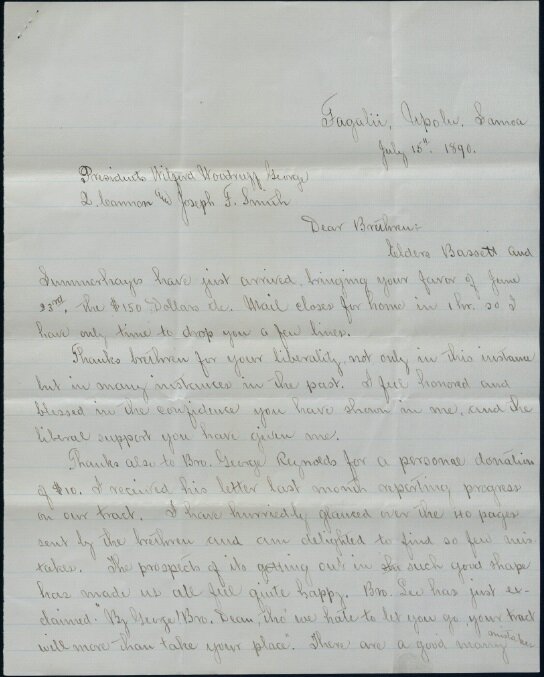 Fagalii, Upolu, Samoa
July 15th. 1890.
Presidents Wilford Woodruff George
Q. Cannon and Joseph F. Smith
Dear Brethren:
Elders Bassett and
Summerhays have just arrived, bringing your favor of June
23rd, the $150 Dollars &c. Mail closes for home in 1 hr. so I
have only time to drop you a few lines.
Thanks brethren for your liberality, not only in this instance
but in many instances in the past. I feel honored and
blessed in the confidence you have shown in me, and the
liberal support you have given me.
Thanks also to Bro. George Reynolds for a personal donation
of $10. I received his letter last month reporting progress
on our tract. I have hurriedly glanced over the 40 pages
sent by the brethren and am delighted to find so few mis-
takes. The prospects of its getting out in such good shape
has made us all feel quite happy. Bro. Lee has just ex-
claimed "By George! Bro. Dean, tho' we hate to let you go, your tract
will more than take your place". There are a good many mistakes